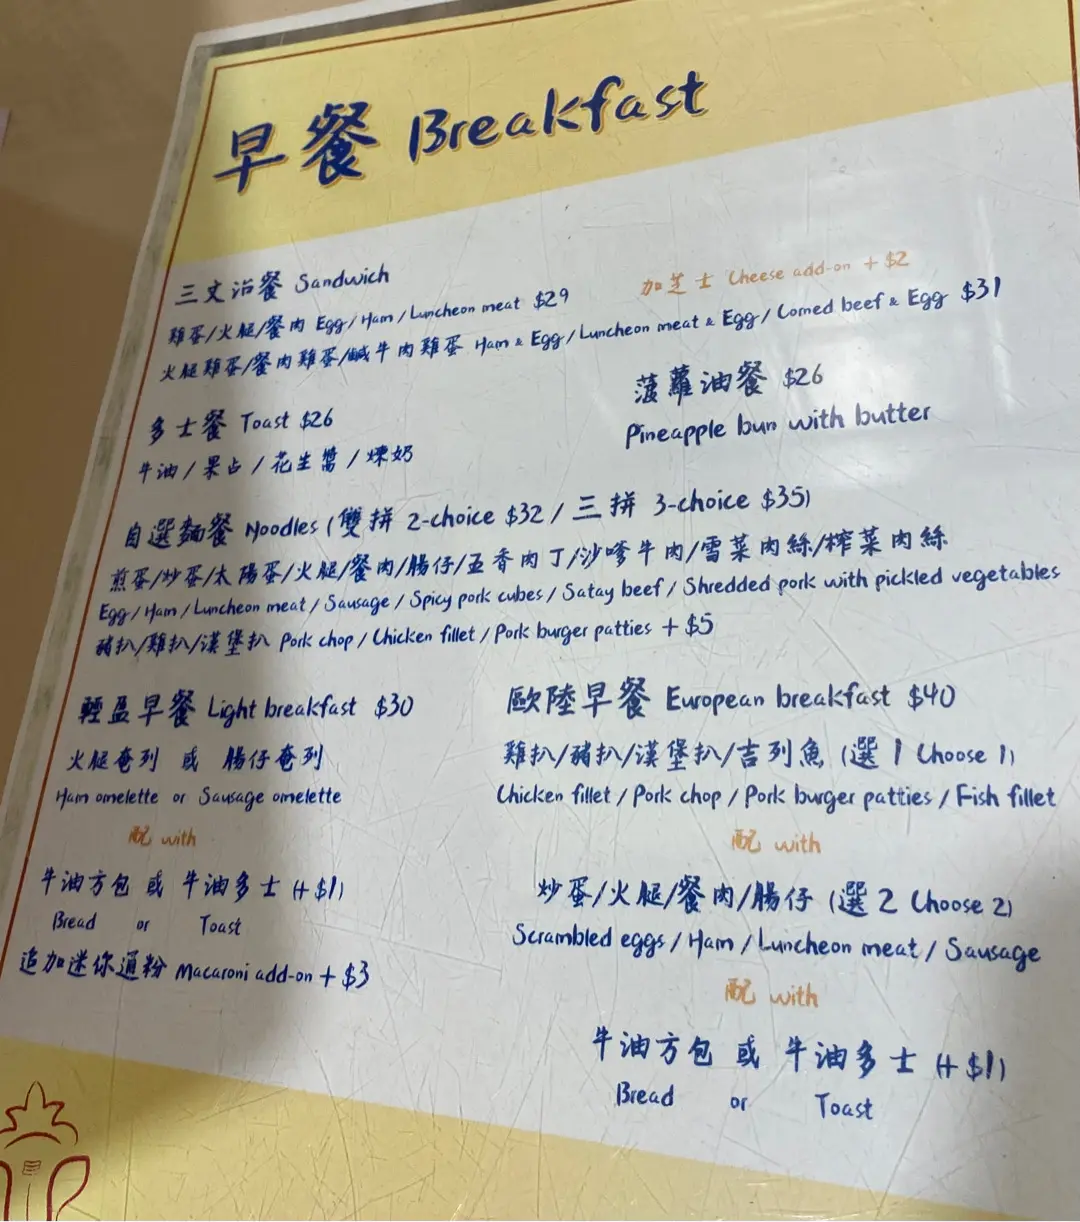 早餐 Breakfast
三文治餐 Sandwich
雞蛋/火腿/餐肉 Egg/Ham/Luncheon meat $29
加芝士 Cheese add-on +$2
火腿雞蛋/餐肉雞蛋/鹹牛肉雞蛋 Ham & Egg/Luncheon meat & Egg/Corned beef & Egg $31
多士餐 Toast $26
牛油/果占/花生醬/煉奶
菠蘿油餐 $26
Pineapple bun with butter
自選麵餐 Noodles (雙拼 2-choice $32/三拼 3-choice $35)
煎蛋/炒蛋/太陽蛋/火腿/餐肉/腸仔/五香肉丁/沙嗲牛肉/雪菜肉絲/榨菜肉絲
Egg/Ham/Luncheon meat/Sausage/Spicy pork cubes/Satay beef/Shredded pork with pickled vegetables
豬扒/雞扒/漢堡扒 Pork chop/Chicken fillet/Pork burger patties +$5
輕盈早餐 Light breakfast $30
火腿奄列 或 腸仔奄列
Ham omelette or Sausage omelette
配 with
牛油方包 或 牛油多士 (+$1)
Bread or Toast
追加迷你通粉 Macaroni add-on +$3
歐陸早餐 European breakfast $40
雞扒/豬扒/漢堡扒/吉列魚 (選1 Choose 1)
Chicken fillet/Pork chop/Pork burger patties/Fish fillet
配 with
炒蛋/火腿/餐肉/腸仔 (選2 Choose 2)
Scrambled eggs/Ham/Luncheon meat/Sausage
配 with
牛油方包 或 牛油多士 (+$1)
Bread or Toast